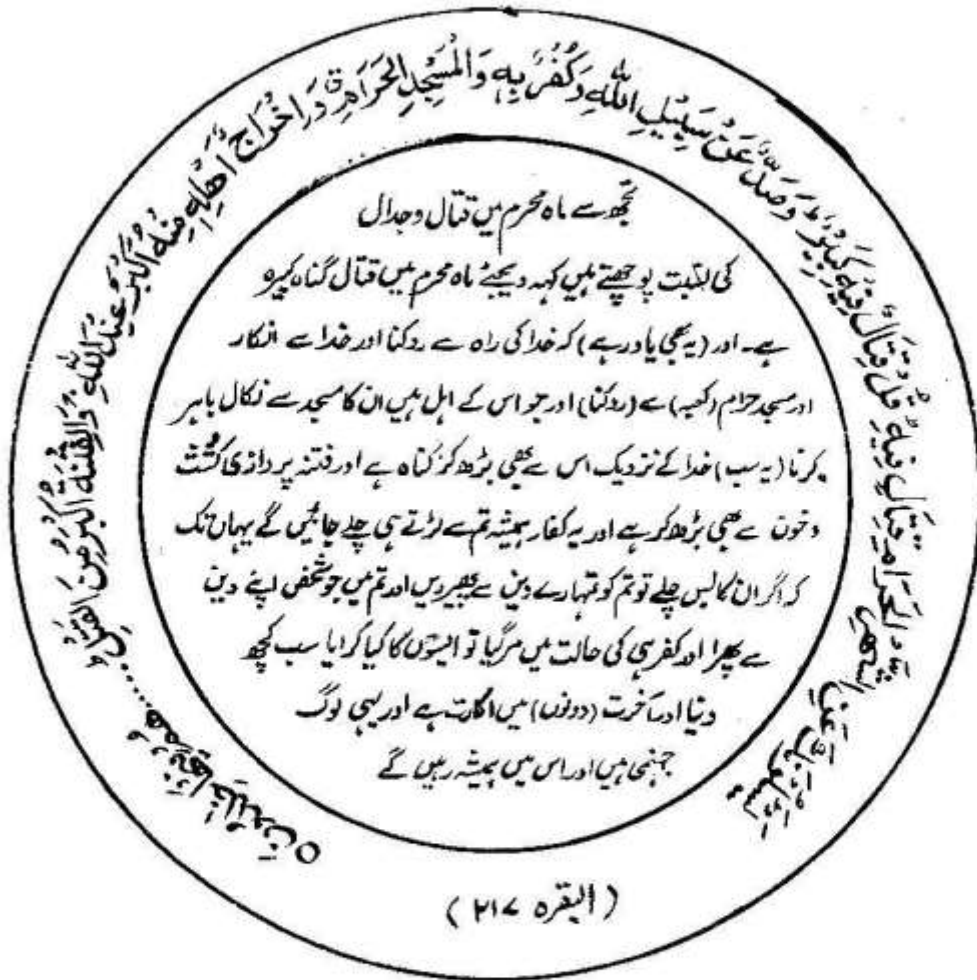 يَسْئَلُوْنَكَ عَنِ الشَّهْرِ الْحَرَامِ قِتَالٍ فِيْهِ قُلْ قِتَالٌ فِيْهِ كَبِيْرٌ ط وَصَدٌّ عَنْ سَبِيْلِ اللّٰهِ وَكُفْرٌۢ بِهٖ وَالْمَسْجِدِ الْحَرَامِ ق وَاِخْرَاجُ اَهْلِهٖ مِنْهُ اَكْبَرُ عِنْدَ اللّٰهِ وَالْفِتْنَةُ اَكْبَرُ مِنَ الْقَتْلِ ...... هُمْ فِيْهَا خٰلِدُوْنَ ○
تجھ سے ماہ محرم میں قتال و جدال
کی نسبت پوچھتے ہیں کہہ دیجئے ماہ محرم میں قتال گناہ کبیرہ
ہے۔ اور (یہ بھی یاد رہے) کہ خدا کی راہ سے روکنا اور خدا سے انکار
اور مسجد حرام (کعبہ) سے (روکنا) اور جو اس کے اہل ہیں ان کا مسجد سے نکال باہر
کرنا (یہ سب) خدا کے نزدیک اس سے بھی بڑھ کر گناہ ہے اور فتنہ پردازی کشت
و خون سے بھی بڑھ کر ہے اور یہ کفار ہمیشہ تم سے لڑتے ہی چلے جائیں گے یہاں تک
کہ اگر ان کا بس چلے تو تم کو تمہارے دین سے پھیر دیں اور تم میں جو شخص اپنے دین
سے پھرا اور کفر ہی کی حالت میں مر گیا تو ایسوں کا کیا کرایا سب کچھ
دنیا اور آخرت (دونوں) میں اکارت ہے اور یہی لوگ
جہنمی ہیں اور اس میں ہمیشہ رہیں گے
(البقرہ ۲۱۷)